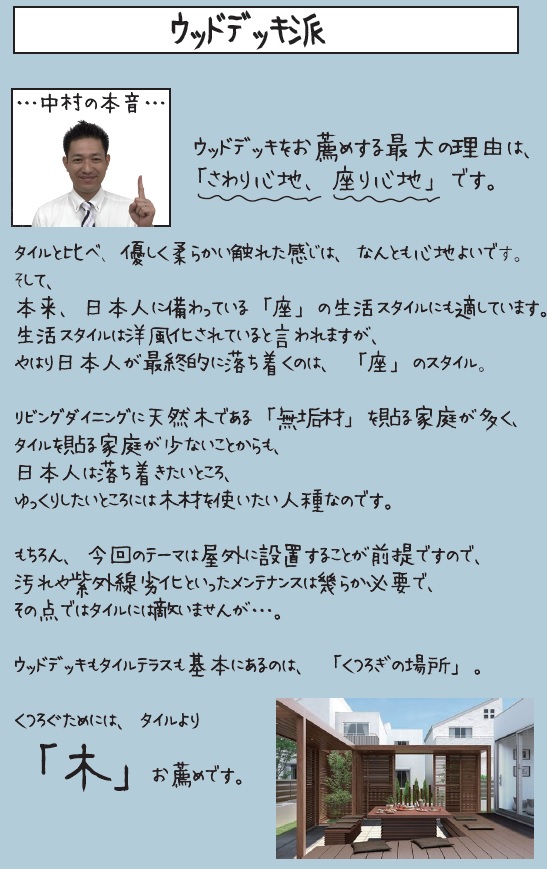 ウッドデッキ派
…中村の本音…
ウッドデッキをお薦めする最大の理由は、
「さわり心地、座り心地」です。
タイルと比べ、優しく柔らかい触れた感じは、なんとも心地よいです。
そして、
本来、日本人に備わっている「座」の生活スタイルにも適しています。
生活スタイルは洋風化されていると言われますが、
やはり日本人が最終的に落ち着くのは、「座」のスタイル。
リビングダイニングに天然木である「無垢材」を貼る家庭が多く、
タイルを貼る家庭が少ないことからも、
日本人は落ち着きたいところ、
ゆっくりしたいところには木材を使いたい人種なのです。
もちろん、今回のテーマは屋外に設置することが前提ですので、
汚れや紫外線劣化といったメンテナンスは幾らか必要で、
その点ではタイルには敵いませんが・・・。
ウッドデッキもタイルテラスも基本にあるのは、「くつろぎの場所」。
くつろぐためには、タイルより
「木」お薦めです。